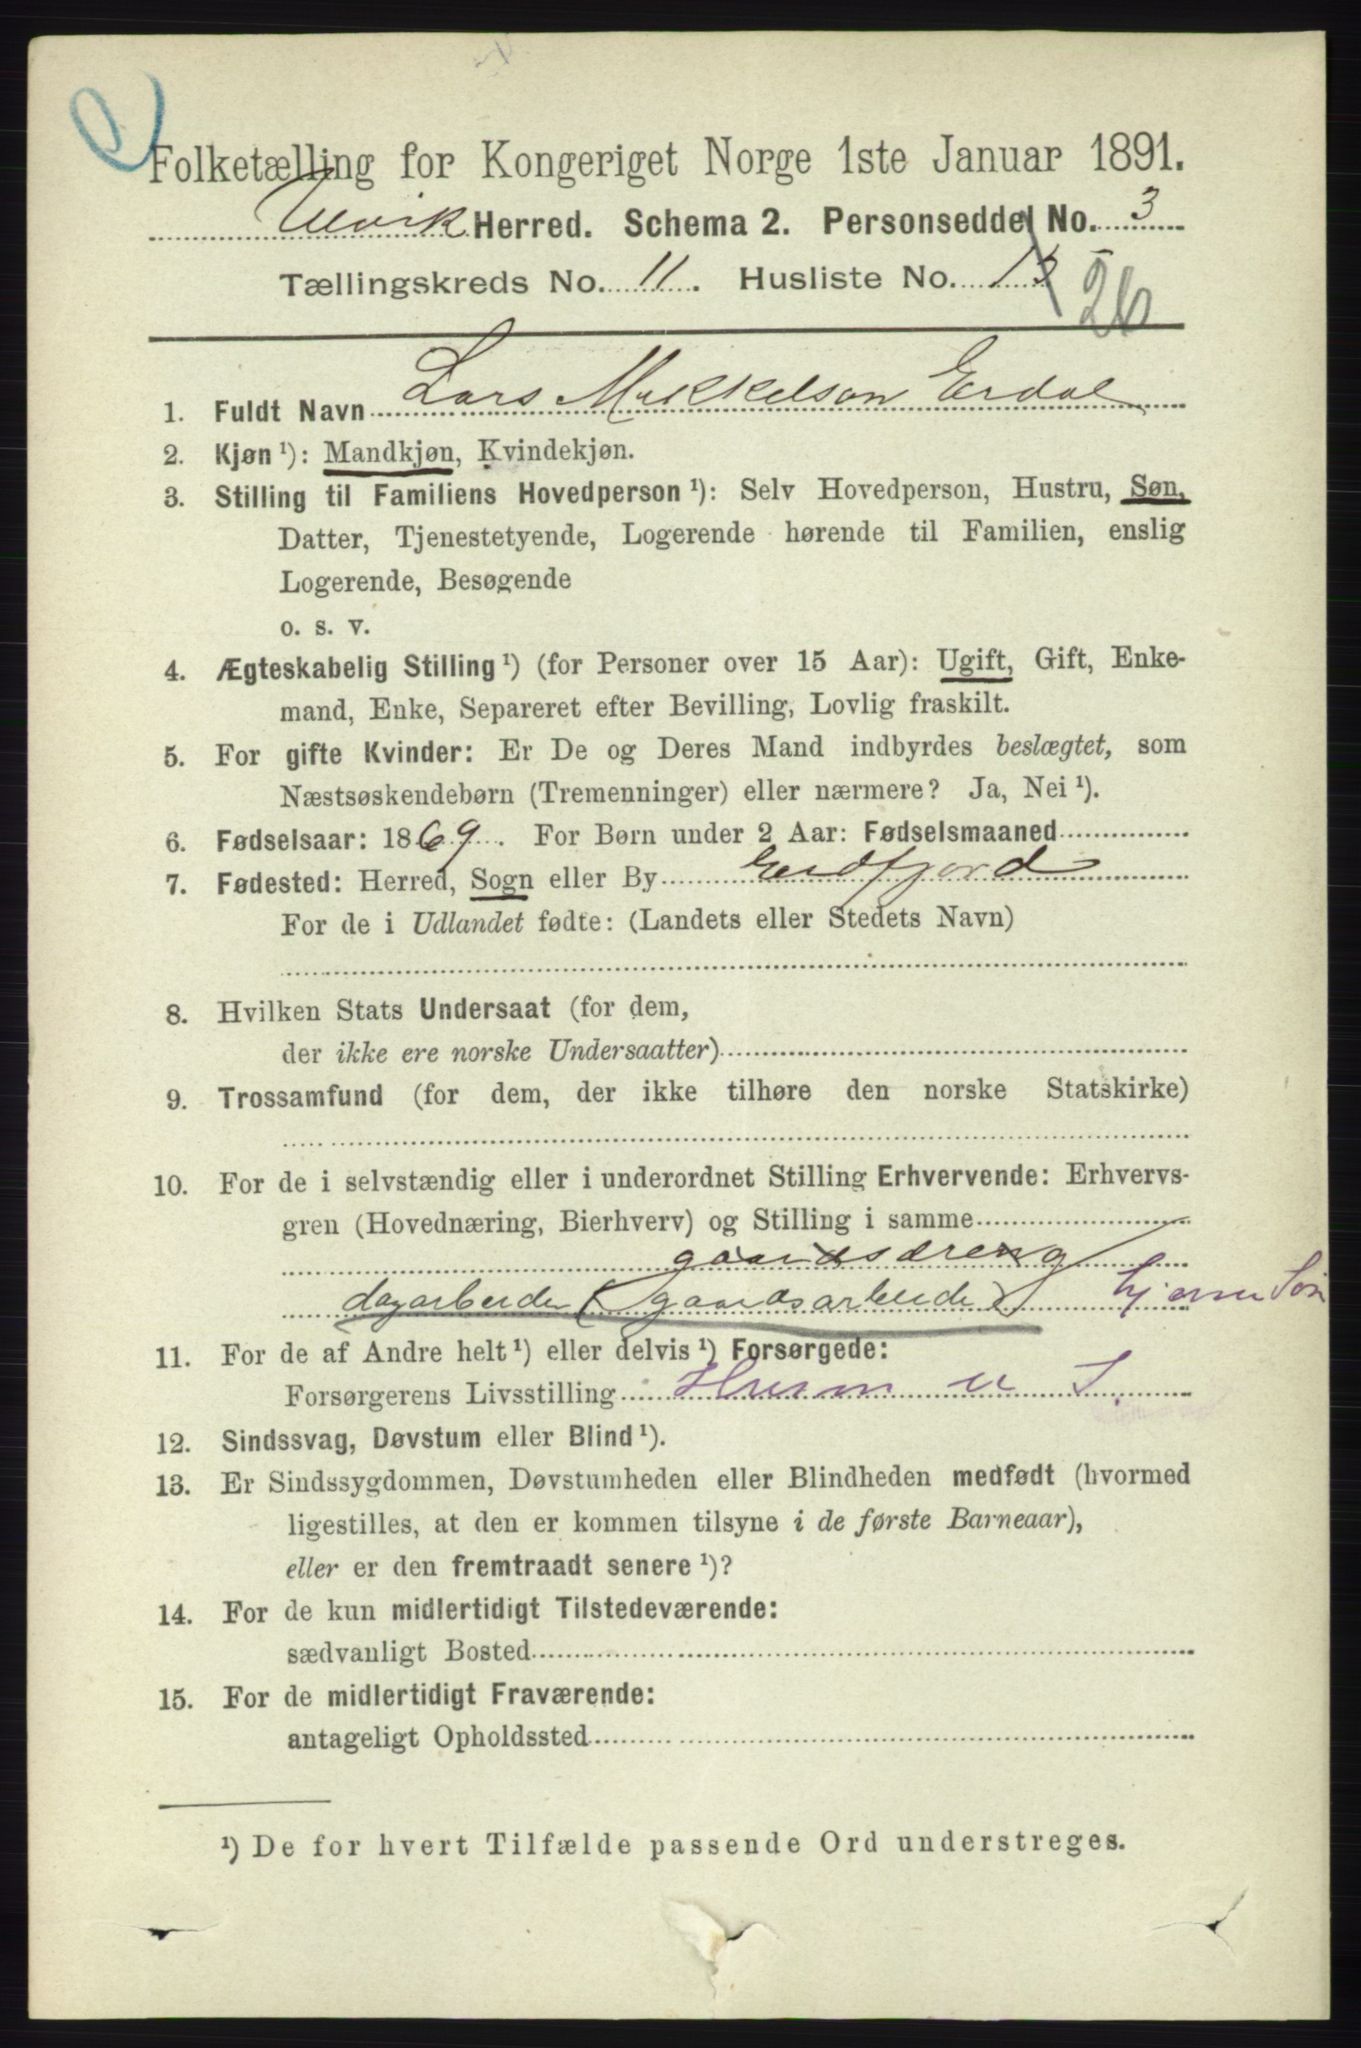 Folketælling for Kongeriget Norge 1ste Januar 1891.
Ulvik Herred. Schema 2. Personseddel No. 3
Tællingskreds No. 11. Husliste No. 13 26
1. Fuldt Navn Lars Mikkelson Erdal
2. Kjøn ¹): Mandkjøn, Kvindekjøn.
3. Stilling til Familiens Hovedperson ¹): Selv Hovedperson, Hustru, Søn,
Datter, Tjenestetyende, Logerende hørende til Familien, enslig
Logerende, Besøgende
o. s. v.
4. Ægteskabelig Stilling ¹) (for Personer over 15 Aar): Ugift, Gift, Enke-
mand, Enke, Separeret efter Bevilling, Lovlig fraskilt.
5. For gifte Kvinder: Er De og Deres Mand indbyrdes beslægtet, som
Næstsøskendebørn (Tremenninger) eller nærmere? Ja, Nei ¹).
6. Fødselsaar: 1869. For Børn under 2 Aar: Fødselsmaaned
7. Fødested: Herred, Sogn eller By Eidfjord
For de i Udlandet fødte: (Landets eller Stedets Navn)
8. Hvilken Stats Undersaat (for dem,
der ikke ere norske Undersaatter)
9. Trossamfund (for dem, der ikke tilhøre den norske Statskirke)
10. For de i selvstændig eller i underordnet Stilling Erhvervende: Erhvervs-
gren (Hovednæring, Bierhverv) og Stilling i samme
gaardsdreng
dagarbeider (gaardsarbeide) hjemme Søn
11. For de af Andre helt ¹) eller delvis ¹) Forsørgede:
Forsørgerens Livsstilling Husm u J.
12. Sindssvag, Døvstum eller Blind ¹).
13. Er Sindssygdommen, Døvstumheden eller Blindheden medfødt (hvormed
ligestilles, at den er kommen tilsyne i de første Barneaar),
eller er den fremtraadt senere ¹)?
14. For de kun midlertidigt Tilstedeværende:
sædvanligt Bosted
15. For de midlertidigt Fraværende:
antageligt Opholdssted
¹) De for hvert Tilfælde passende Ord understreges.